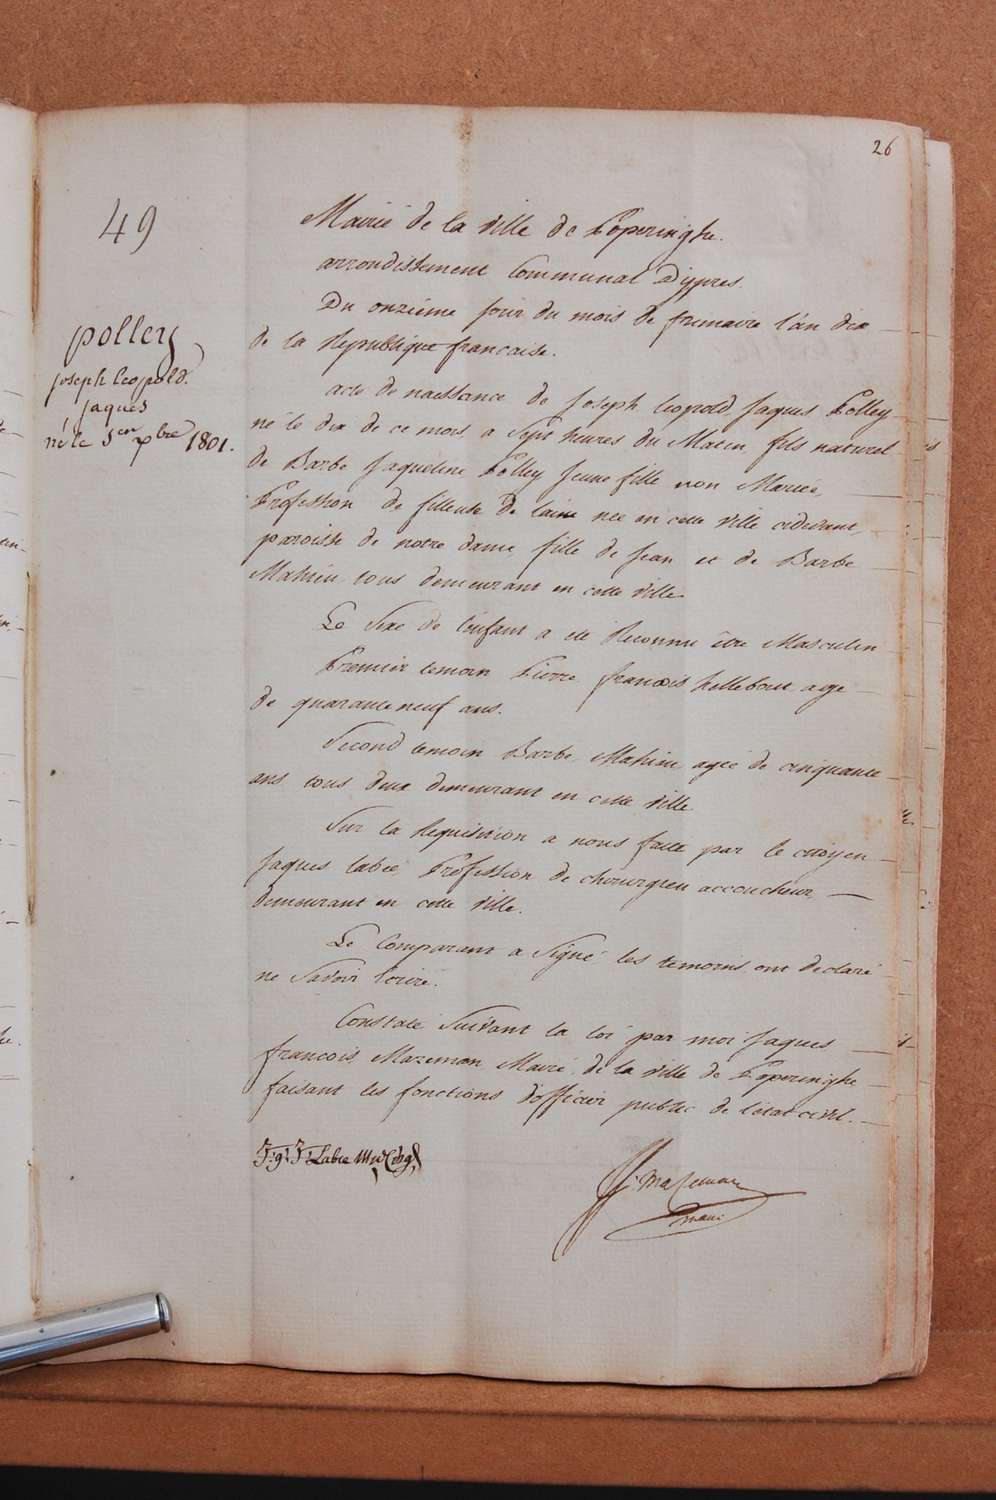 26
49
Mairie de la ville de Poperinghe.
arrondissement Communal D'ypres.
Du onzième jour du mois de frimaire l'an dix
de la Republique francaise.
polley
joseph leopold
jaques
né le 1er xbre 1801.
acte de naissance de Joseph leopold Jaques Polley
né le dix de ce mois a Sept heures du Matin, fils naturel
de Barbe Jaqueline Polley Jeune fille non Mariée,
Profession de filleuse de laine née en cette ville cidevant
paroisse de notre dame, fille de Jean et de Barbe
Mahieu tous demeurant en cette ville
Le Sexe de l'enfant a eté Reconnu être Masculin
Premier temoin Pierre francois hellebout agé
de quarante neuf ans.
Second temoin Barbe Mahieu agée de cinquante
ans tous deux demeurant en cette ville
Sur la Requisition a nous faite par le citoyen
Jaques labie, Profession de chirurgien accoucheur,
demeurant en cette ville.
Le Comparant a Signé les temoins ont declaré
ne Savoir Ecrire.
Constaté Suivant la loi par moi Jaques
francois Mazeman Maire de la ville de Poperinghe
faisant les fonctions d'officier public de l'etat civil.
Labie
Mazeman
maire